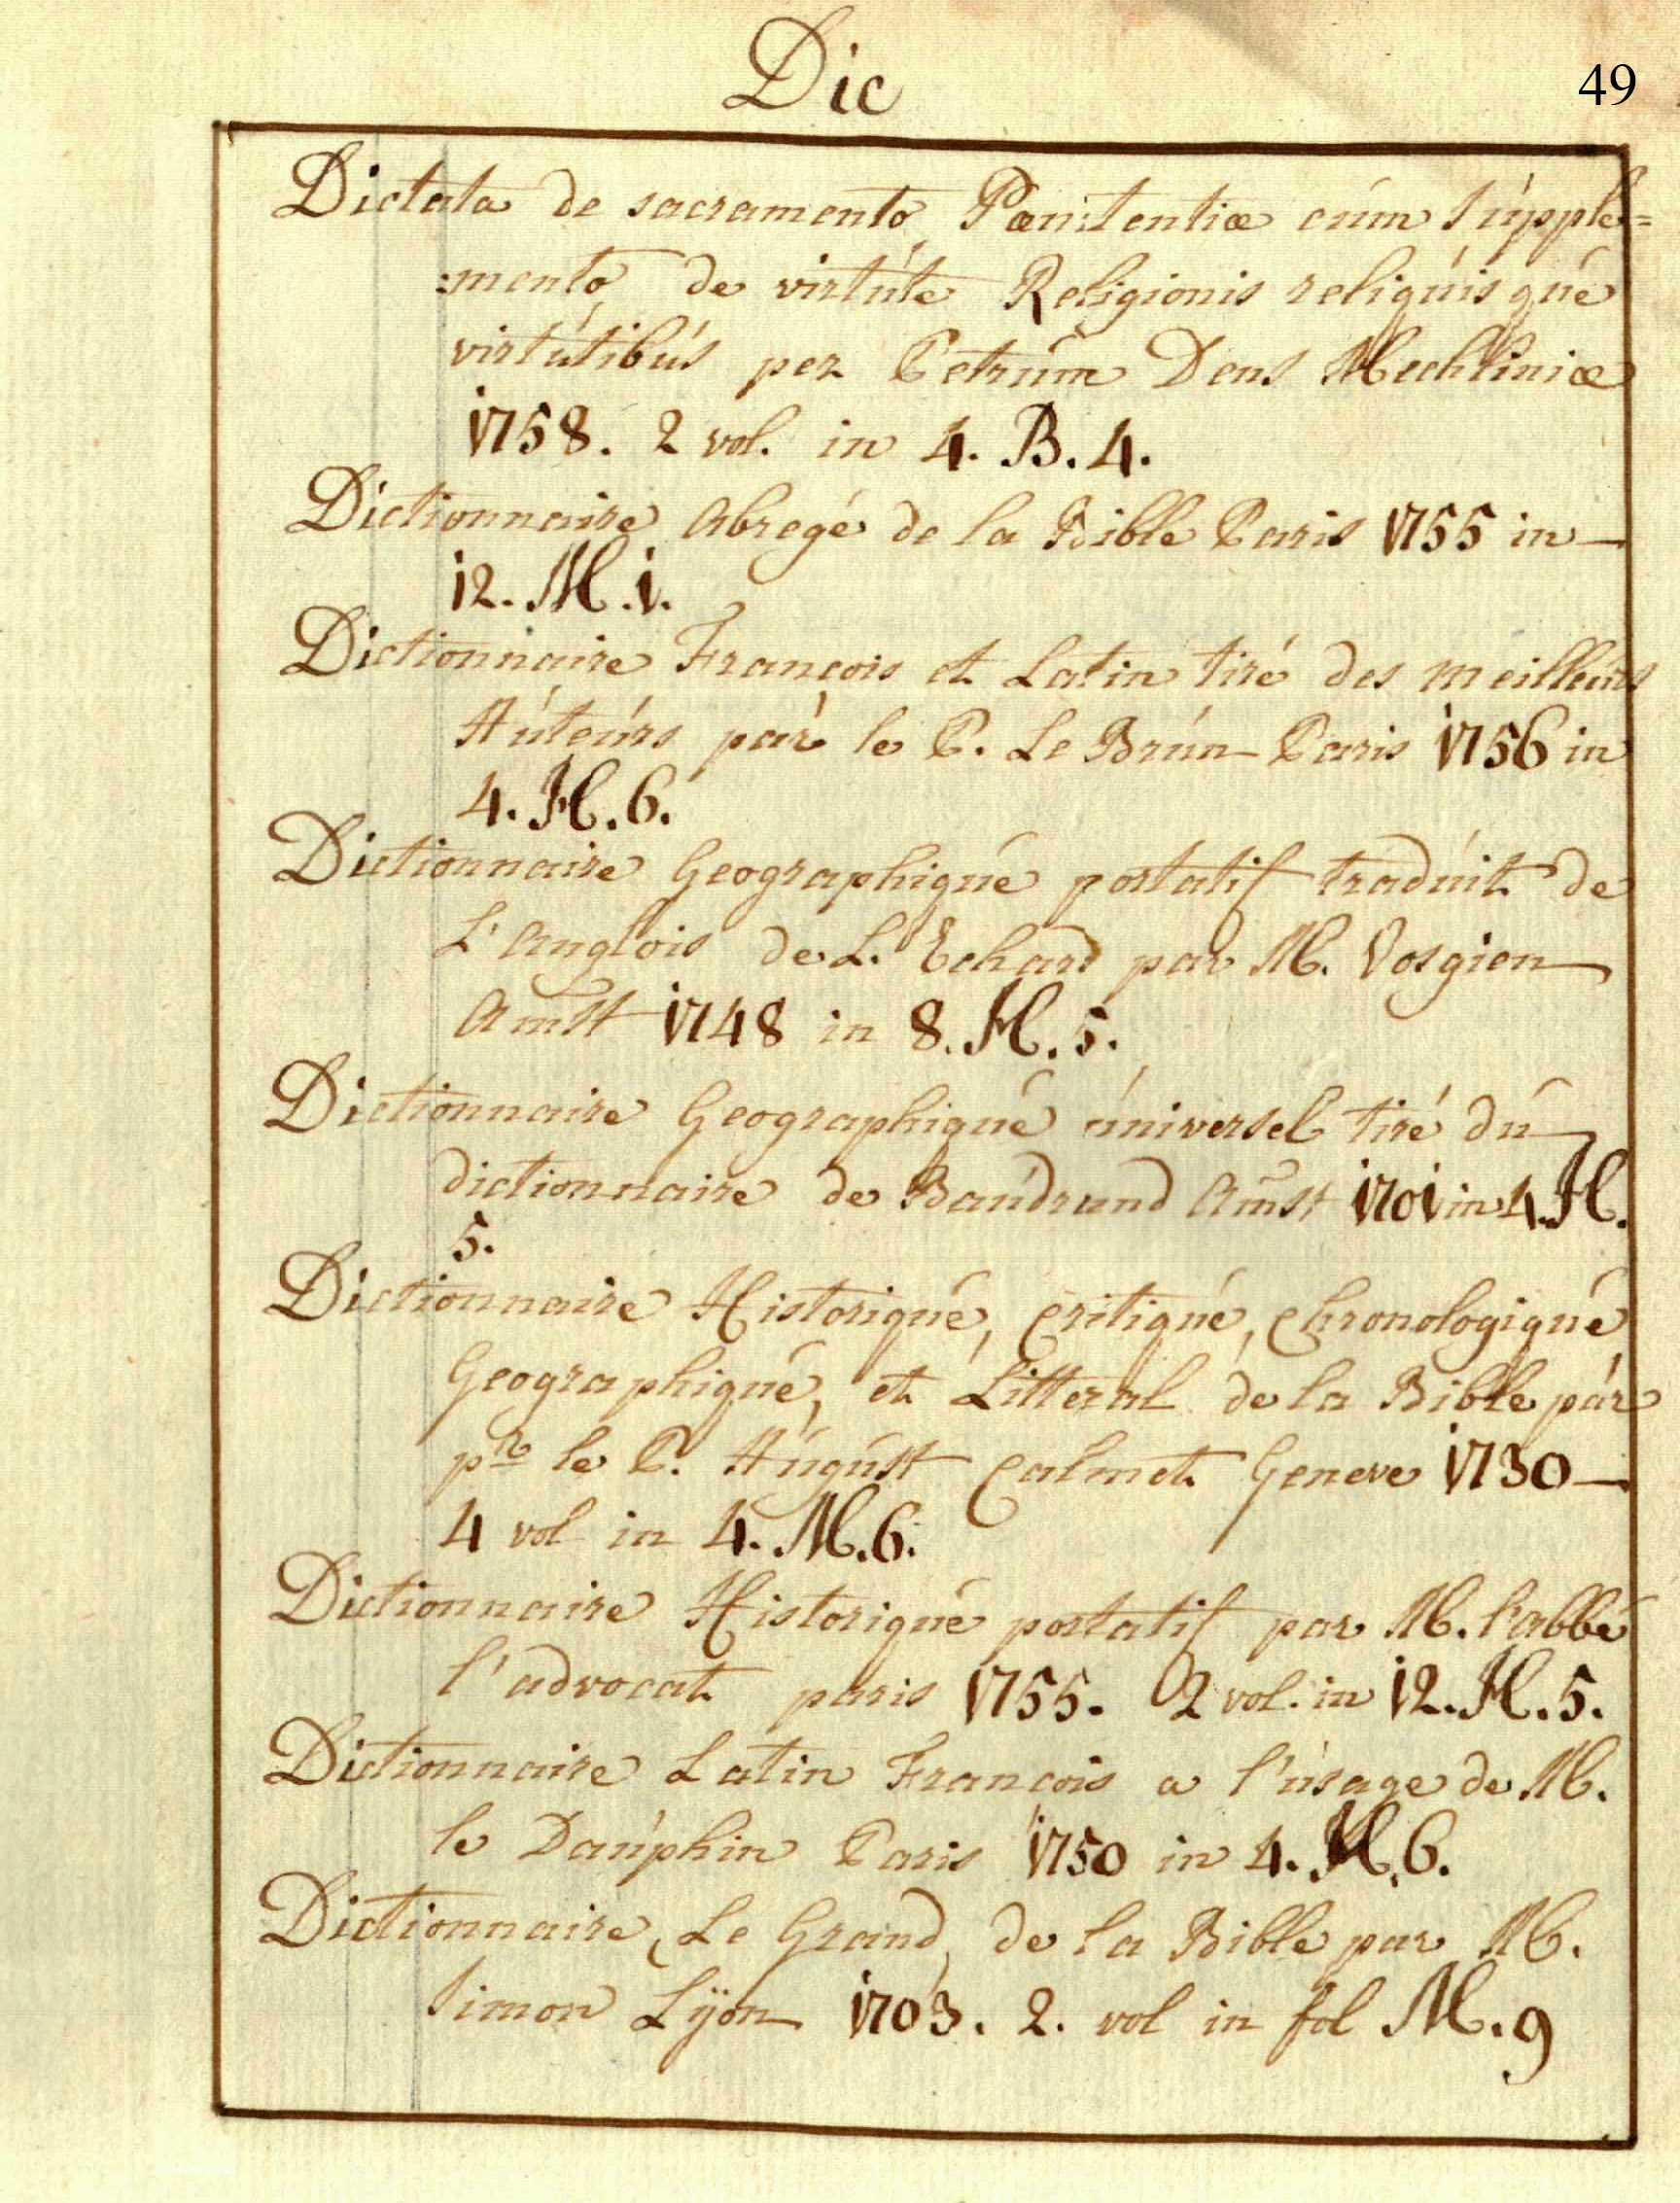 Dic
49
Dictata de sacramento Pœnitentiæ cúm súpple=
:mento de virtúte Religionis reliqúisqúe
virtútibús per Petrúm Dens Mechliniæ
1758. 2 vol. in 4. B. 4.
Dictionnaire Abregé de la Bible Paris 1755 in
12. M. i.
Dictionnaire François et Latin tiré des meilleúrs
Aúteúrs par le P. Le Brún Paris 1756 in
4. H. 6.
Dictionnaire Geographiqúe portatif tradúit de
L'Anglois de L. Echard par M. Vosgien
Amst 1748 in 8. H. 5.
Dictionnaire Geographiqúe úniversel tiré dú
dictionnaire de Baúdrand Amst 1701 in 4. H.
5.
Dictionnaire Historiqúe, Critiqúe, Chronologiqúe
Geographiqúe, et Litteral de la Bible par
pr le P. Aúgúst Calmet Geneve 1730
4 vol in 4. M. 6.
Dictionnaire Historiqúe portatif par M. l'abbé
l'advocat paris 1755. 2 vol. in 12. H. 5.
Dictionnaire Latin Francois a l'úsage de M.
le Daúphin Paris 1750 in 4. H. 6.
Dictionnaire, Le Grand, de la Bible par M.
Simon Lÿon 1703. 2. vol in fol M. 9